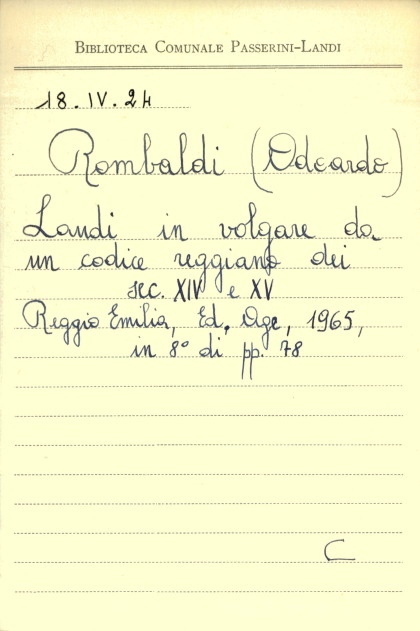 BIBLIOTECA COMUNALE PASSERINI-LANDI
18.IV.24
Rombaldi (Odoardo)
Landi in volgare da
un codice reggiano dei
sec. XIV e XV
Reggio Emilia, Ed. Age, 1965,
in 8° di pp. 78
C